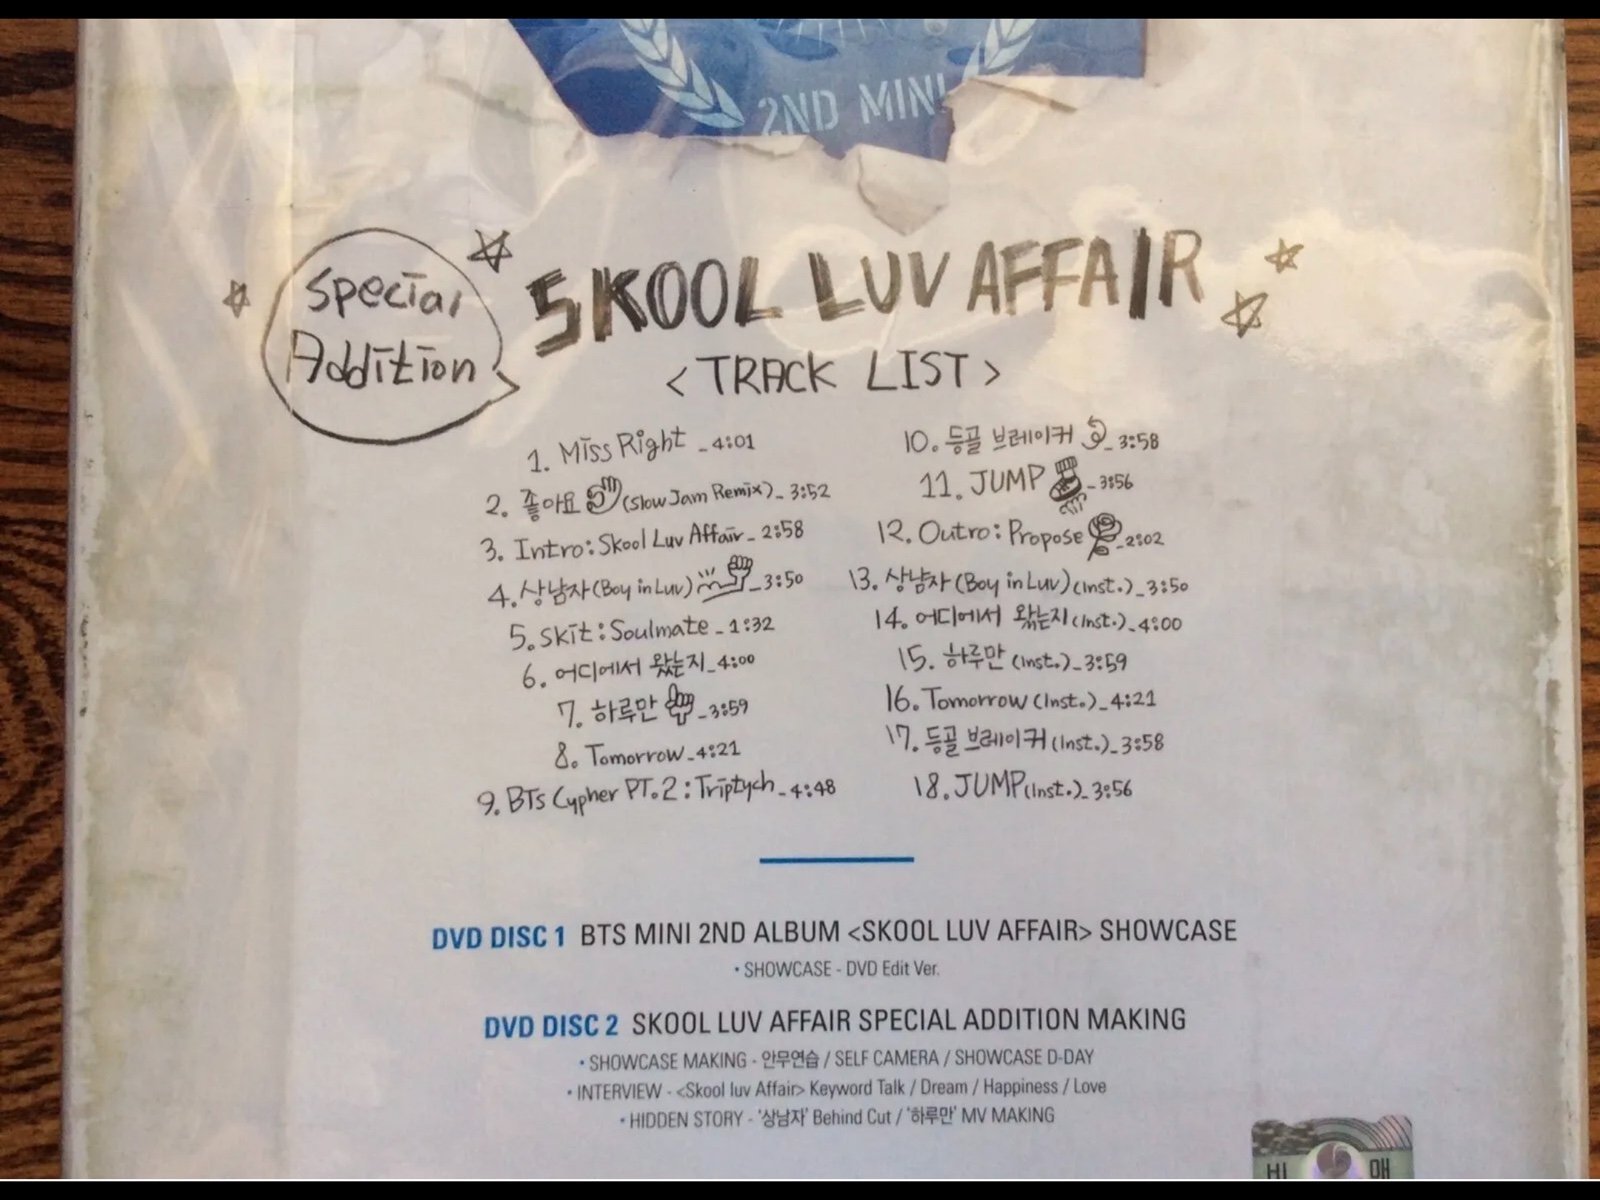 2ND MINI
Special
Addition
SKOOL LUV AFFAIR
<TRACK LIST>
1. Miss Right _ 4:01
2. 좋아요 (Slow Jam Remix)_ 3:52
3. Intro: Skool Luv Affair_ 2:58
4. 상남자(Boy in Luv) _3:50
5. Skit: Soulmate_ 1:32
6. 어디에서 왔는지_4:00
7. 하루만 _3:59
8. Tomorrow_4:21
9. BTS Cypher PT.2: Triptych_4:48
10. 등골 브레이커 _3:58
11. JUMP _3:56
12. Outro: Propose _2:02
13. 상남자(Boy in Luv)(Inst.)_3:50
14. 어디에서 왔는지(Inst.)_4:00
15. 하루만 (Inst.)_3:59
16. Tomorrow (Inst.)_4:21
17. 등골 브레이커(Inst.)_3:58
18. JUMP(Inst.)_3:56
DVD DISC 1 BTS MINI 2ND ALBUM <SKOOL LUV AFFAIR> SHOWCASE
• SHOWCASE - DVD Edit Ver.
DVD DISC 2 SKOOL LUV AFFAIR SPECIAL ADDITION MAKING
• SHOWCASE MAKING - 안무연습 / SELF CAMERA / SHOWCASE D-DAY
• INTERVIEW - <Skool luv Affair> Keyword Talk / Dream / Happiness / Love
• HIDDEN STORY - '상남자' Behind Cut / '하루만' MV MAKING